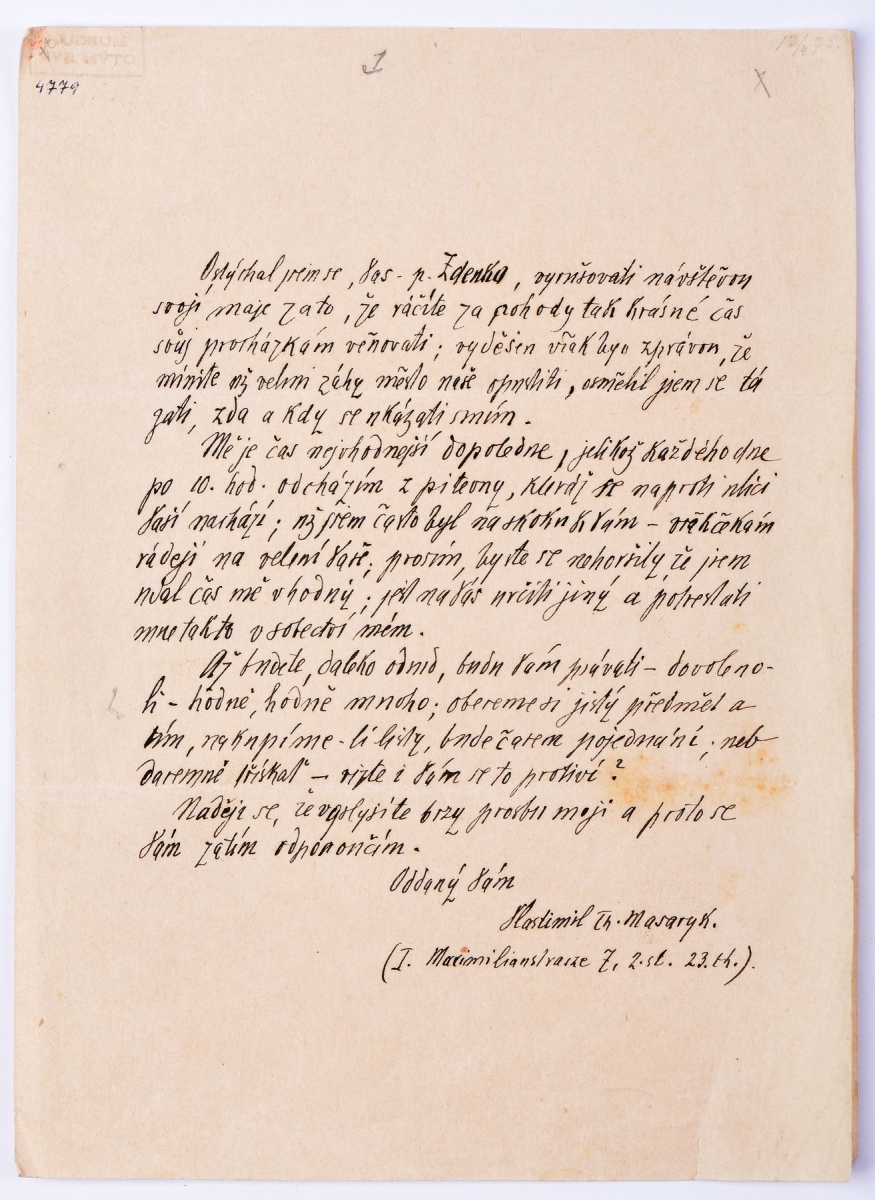 4779
1
13/4 75.
Ostýchal jsem se, Vás - p. Zdenko, vyrušovati návštěvou
svojí maje za to, že ráčíte za pohody tak krásné čas
svůj procházkám věnovati; vyděšen však byv zprávou, že
míníte už velmi záhy město naše opustiti, osmělil jsem se tá
zati, zda a kdy se ukázati smím.
Mě je čas nejvhodnější dopoledne, jelikož každého dne
po 10. hod. odcházím z pitevny, kteráž se naproti ulici
Vaší nachází; už jsem často byl na skoku k Vám – však čekám
raději na velení Vaše; prosím, byste se nehoršily že jsem
udal čas mě vhodný; jest na Vás určiti jiný a potrestati
mne takto v sobectví mém.
Až budete, daleko odnud, budu Vám psávati – dovoleno-
li – hodně, hodně mnoho; obereme si jistý předmět a
tím, nakupíme-li listy, bude časem pojednání; neb
daremně třískat – vizte i Vám se to protiví?
Naděje se, že vyslyšíte brzy prosbu moji a proto se
Vám zatím odporoučím.
Oddaný Vám
Vlastimil Th. Masaryk.
(I. Maximilianstrasze 7, 2. st. 23. th.).